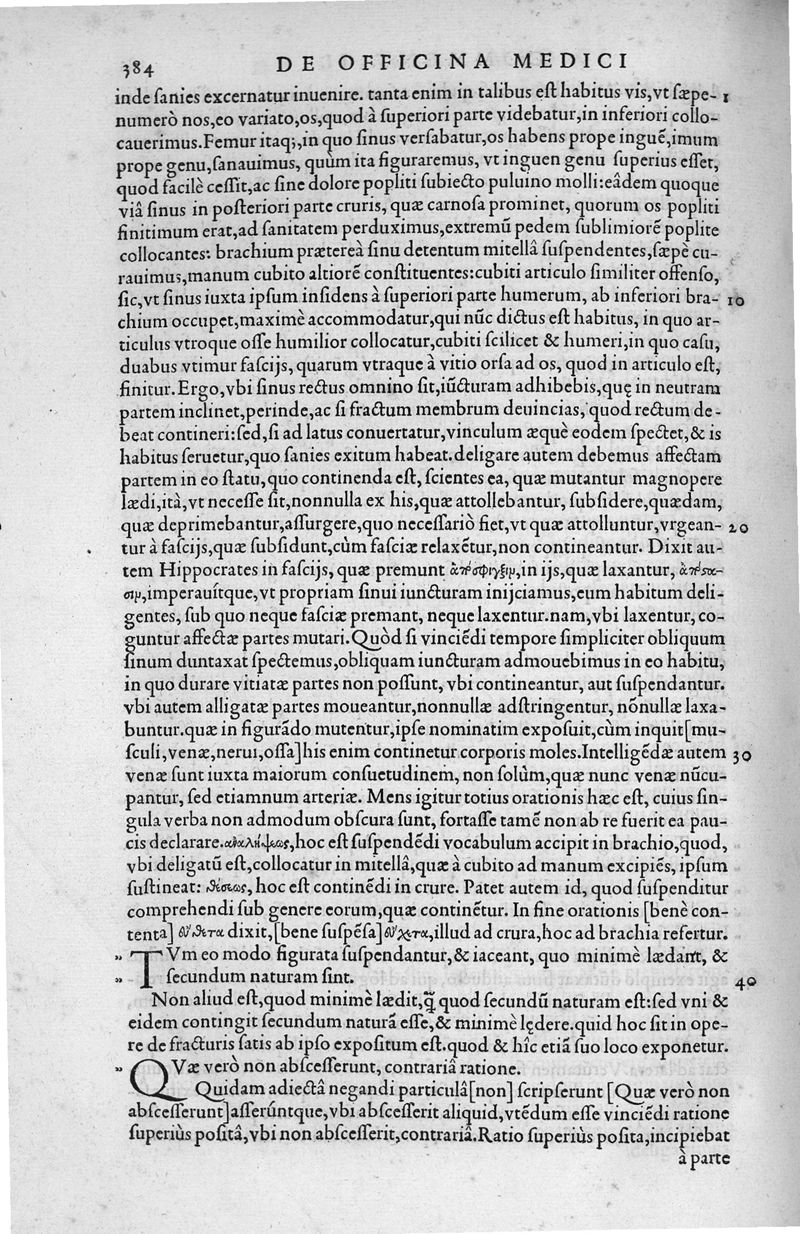 384 DE OFFICINA MEDICI
inde sanies excernatur inuenire. tanta enim in talibus est habitus vis,vt sæpe- 1
numerò nos,eo variato,os,quod à superiori parte videbatur,in inferiori collo-
cauerimus.Femur itaq;,in quo sinus versabatur,os habens prope inguẽ,imum
prope genu,sanauimus, quùm ita figuraremus, vt inguen genu superius esset,
quod facilè cessit,ac sine dolore popliti subiecto puluino molli:eâdem quoque
viâ sinus in posteriori parte cruris, quæ carnosa prominet, quorum os popliti
finitimum erat,ad sanitatem perduximus,extremũ pedem sublimiorẽ poplite
collocantes: brachium prætereà sinu detentum mitellâ suspendentes,sæpè cu-
rauimus,manum cubito altiorẽ constituentes:cubiti articulo similiter offenso,
sic,vt sinus iuxta ipsum insidens à superiori parte humerum, ab inferiori bra- 10
chium occupet,maximè accommodatur,qui nũc dictus est habitus, in quo ar-
ticulus vtroque osse humilior collocatur,cubiti scilicet & humeri,in quo casu,
duabus vtimur fascijs, quarum vtraque à vitio orsa ad os, quod in articulo est,
finitur.Ergo,vbi sinus rectus omnino sit,iũcturam adhibebis,quę in neutram
partem inclinet,perinde,ac si fractum membrum deuincias, quod rectum de-
beat contineri:sed,si ad latus conuertatur,vinculum æquè eodem spectet,& is
habitus seruetur,quo sanies exitum habeat.deligare autem debemus affectam
partem in eo statu,quo continenda est, scientes ea, quæ mutantur magnopere
lædi,ità,vt necesse sit,nonnulla ex his,quæ attollebantur, subsidere,quædam,
quæ deprimebantur,assurgere,quo necessariò fiet,vt quæ attolluntur,vrgean- 20
tur à fascijs,quæ subsidunt,cùm fasciæ relaxẽtur,non contineantur. Dixit au-
tem Hippocrates in fascijs, quæ premunt ἀπέσφιγξιμ,in ijs,quæ laxantur,
imperauítque,vt propriam sinui iuncturam inijciamus,eum habitum deli-
gentes, sub quo neque fasciæ premant, neque laxentur.nam,vbi laxentur, co-
guntur affectæ partes mutari.Quòd si vinciẽdi tempore simpliciter obliquum
sinum duntaxat spectemus,obliquam iuncturam admouebimus in eo habitu,
in quo durare vitiatæ partes non possunt, vbi contineantur, aut suspendantur.
vbi autem alligatæ partes moueantur,nonnullæ adstringentur, nõnullæ laxa-
buntur.quæ in figurãdo mutentur,ipse nominatim exposuit,cùm inquit[mu-
sculi,venæ,nerui,ossa]his enim continetur corporis moles.Intelligẽdæ autem 30
venæ sunt iuxta maiorum consuetudinem, non solùm,quæ nunc venæ nũcu-
pantur, sed etiamnum arteriæ. Mens igitur totius orationis hæc est, cuius sin-
gula verba non admodum obscura sunt, fortasse tamẽ non ab re fuerit ea pau-
cis declarare.ἀναλήψιος,hoc est suspendẽdi vocabulum accipit in brachio,quod,
vbi deligatũ est,collocatur in mitellâ,quæ à cubito ad manum excipiẽs, ipsum
sustineat: θέσιως, hoc est continẽdi in crure. Patet autem id, quod suspenditur
comprehendi sub genere eorum,quæ continẽtur. In fine orationis [benè con-
tenta] εὔθετα dixit,[bene suspẽsa]εὔχετα,illud ad crura,hoc ad brachia refertur.
” TVm eo modo figurata suspendantur,& iaceant, quo minimè lædant, &
” secundum naturam sint. 40
Non aliud est,quod minimè lædit,q̃ quod secundũ naturam est:sed vni &
eidem contingit secundum naturã esse,& minimè lędere.quid hoc sit in ope-
re de fracturis satis ab ipso expositum est.quod & hîc etiã suo loco exponetur.
” QVæ verò non abscesserunt, contrariâ ratione.
Quidam adiectâ negandi particulâ[non] scripserunt [Quæ verò non
abscesserunt]asserúntque,vbi abscesserit aliquid,vtẽdum esse vinciẽdi ratione
superiùs positâ,vbi non abscesserit,contrariâ.Ratio superiùs posita,incipiebat
à parte